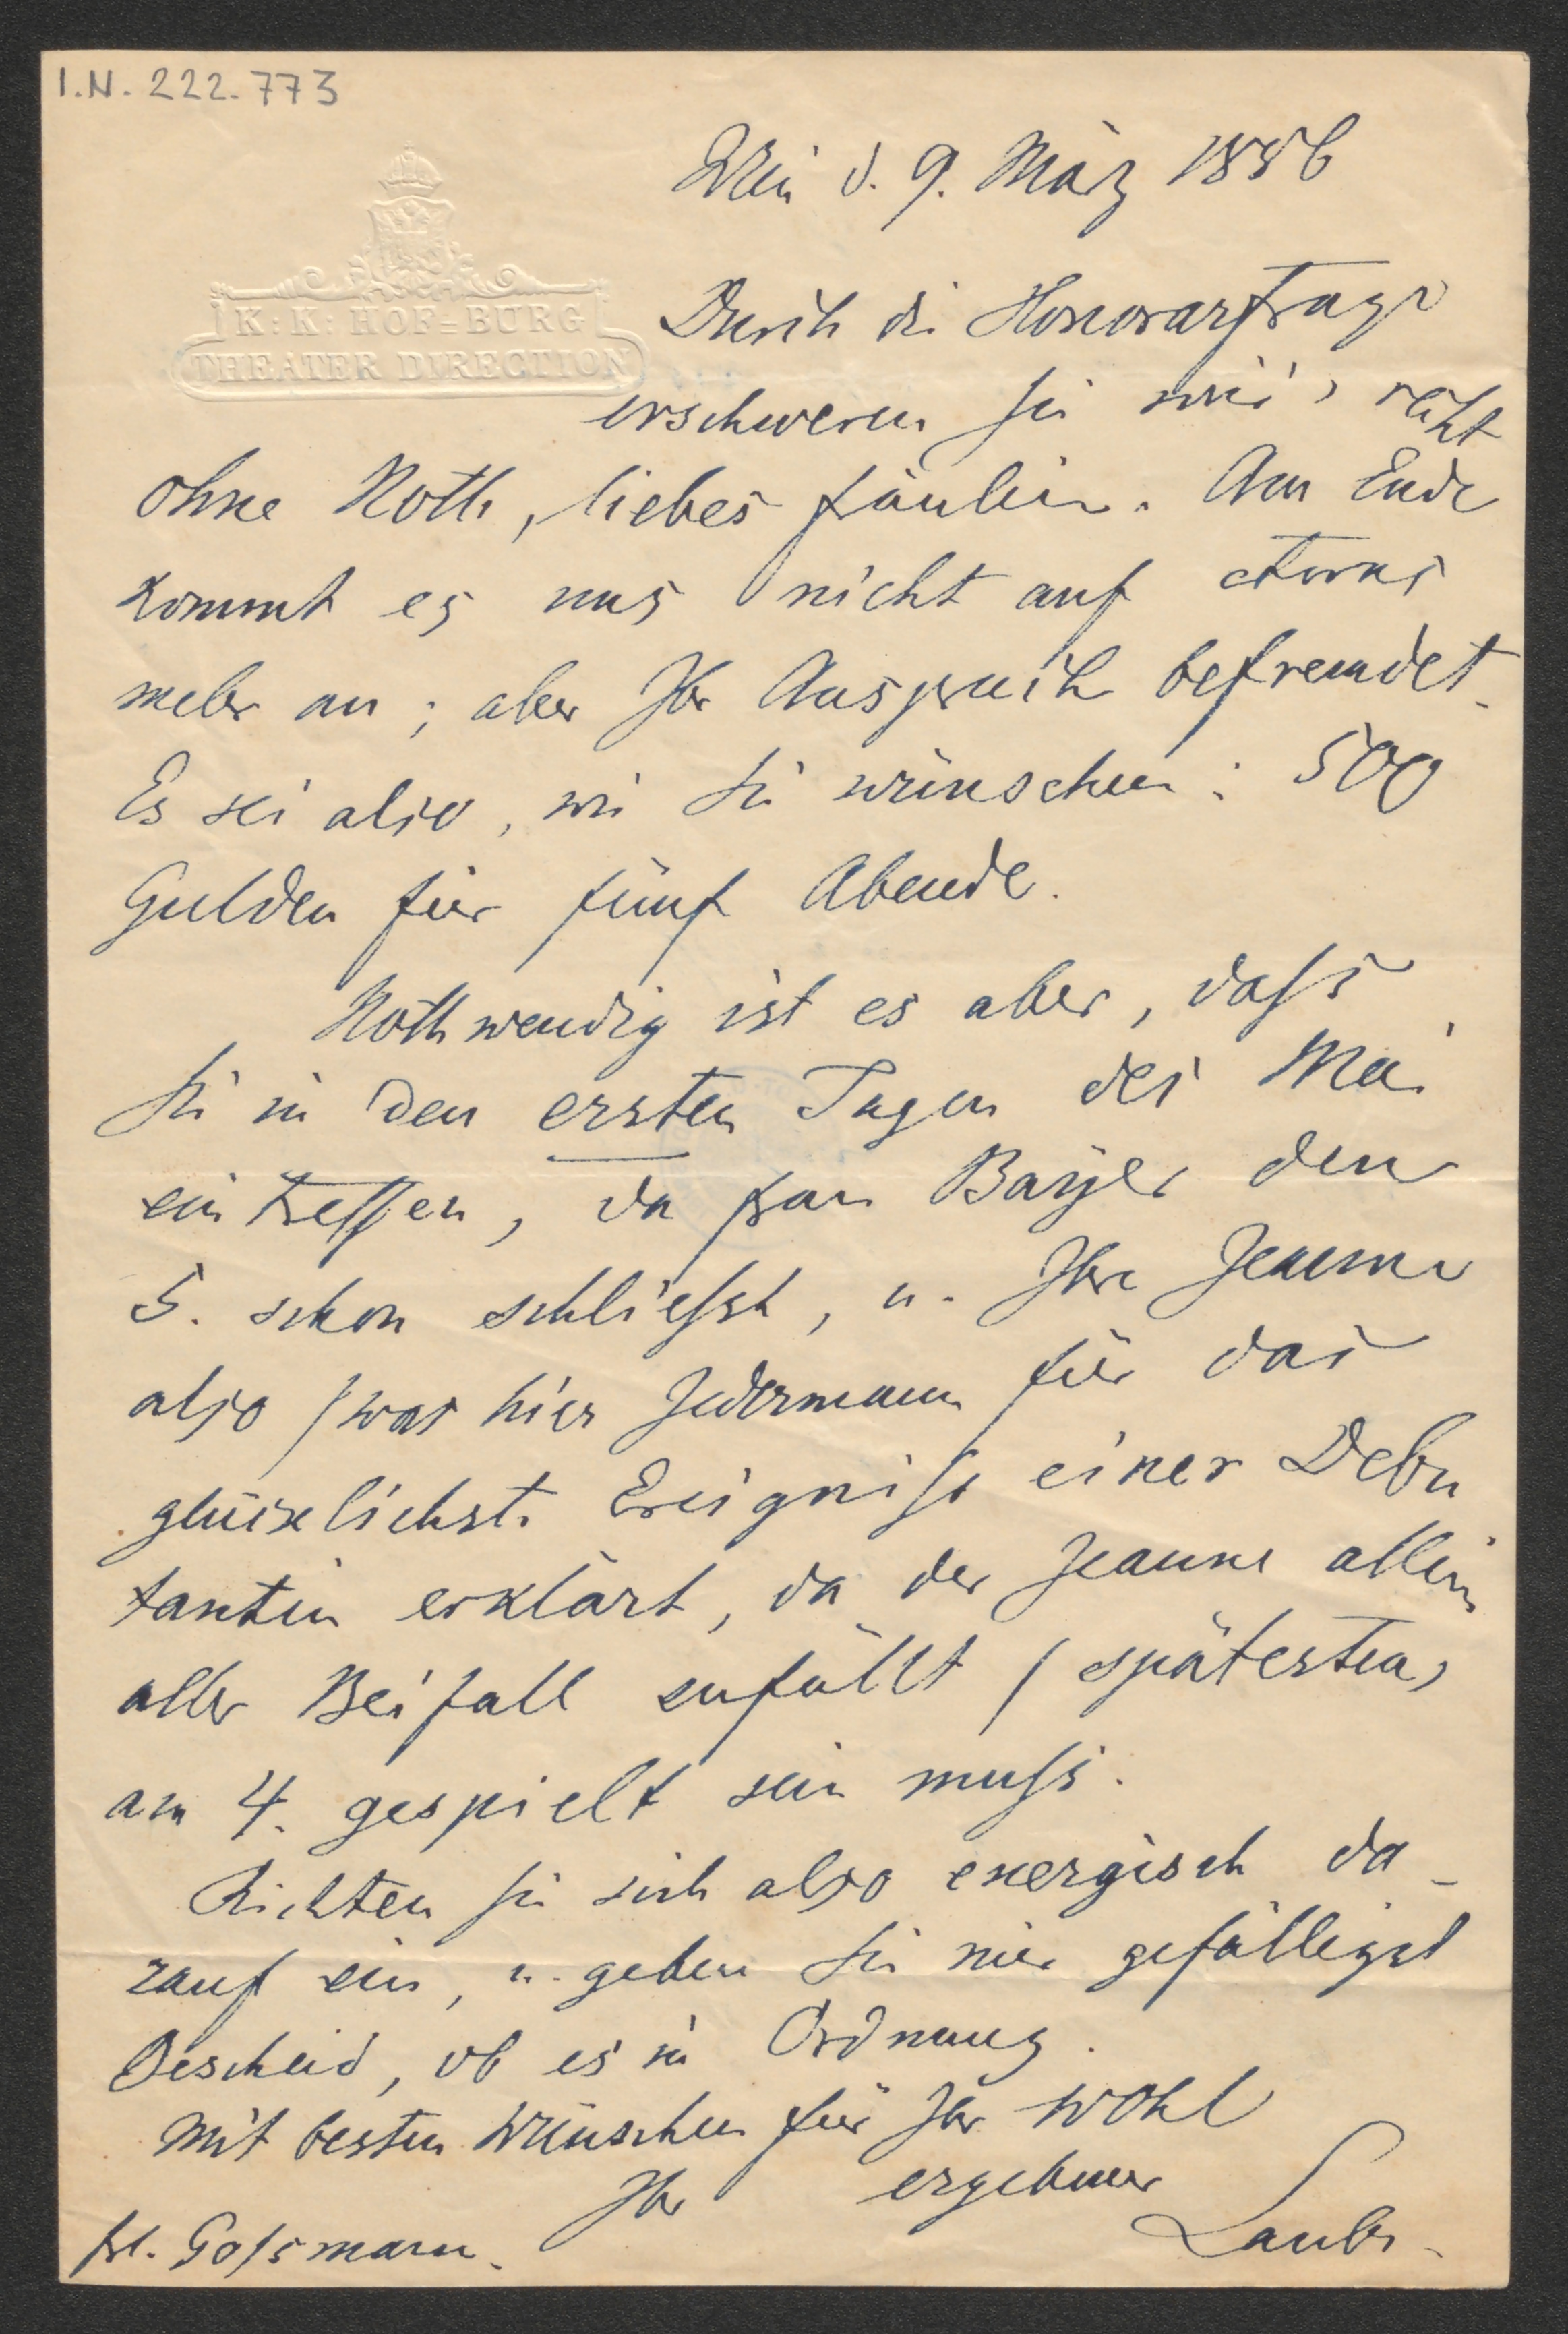 I.N. 222.773
Wien d. 9. März 1856
K: K: HOF=BURG
THEATER DIRECTION
Durch die Honorarfrage
erschweren Sie mir's recht
ohne Noth, liebes Fräulein. Am Ende
kommt es uns nicht auf etwas
mehr an; aber Ihr Anspruch befremdet.
Es sei also, wie Sie wünschen: 500
Gulden für fünf Abende.
Nothwendig ist es aber, dass
Sie in den ersten Tagen des Mai
eintreffen, da Frau Bayer den
5. schon schliesst, u. Ihre Jeanne
also (was hier Jedermann für das
glücklichste Ereigniss einer Debu
tantin erklärt, da der Jeanne allein
aller Beifall zufällt) spätestens
am 4. gespielt sein muss.
Richten Sie sich also energisch da-
rauf ein, u. geben Sie mir gefälligst
Bescheid, ob es in Ordnung.
Mit besten Wünschen für Ihr Wohl
Ihr ergebener
Laube.
Frl. Gossmann.